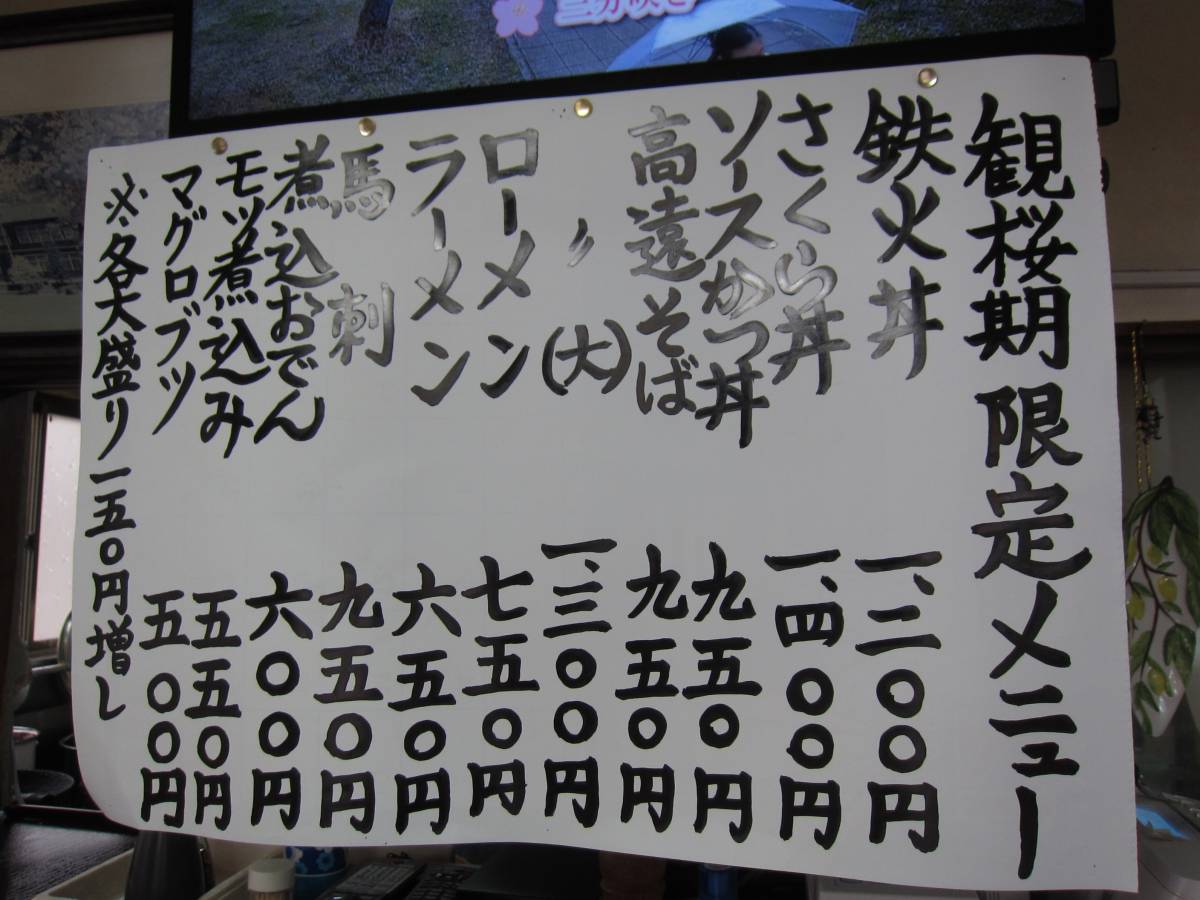 三分咲き
観桜期限定メニュー
鉄火丼 一、二〇〇円
さくら丼 一、四〇〇円
ソースかつ丼 九五〇円
高遠そば 九五〇円
〃 (大) 一、三〇〇円
ローメン 七五〇円
ラーメン 六五〇円
馬刺 九五〇円
煮込おでん 六〇〇円
モツ煮込み 五五〇円
マグロブツ 五〇〇円
※各大盛り一五〇円増し